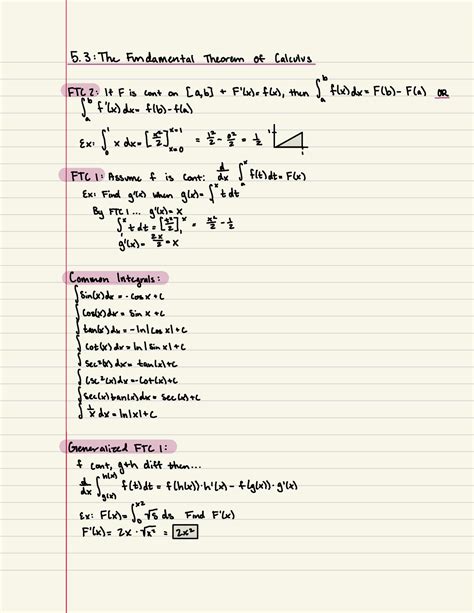 5.3: The Fundamental Theorem of Calculus
FTC 2: If F is cont on [a,b] + F'(x)=f(x), then ∫_a^b f(x)dx = F(b)-F(a) OR
∫_a^b f'(x)dx = f(b)-f(a)
Ex: ∫_0^1 x dx = [x²/2]_{x=0}^{x=1} = 1²/2 - 0²/2 = 1/2
FTC 1: Assume f is cont: d/dx ∫_a^x f(t)dt = F(x)
Ex: Find g'(x) when g(x) = ∫_1^x t dt
By FTC 1 ... g'(x) = x
∫_1^x t dt = [t²/2]_1^x = x²/2 - 1/2
g'(x) = 2x/2 = x
Common Integrals:
∫sin(x)dx = -cos x + C
∫cos(x)dx = sin x + C
∫tan(x)dx = -ln|cos x| + C
∫cot(x)dx = ln|sin x| + C
∫sec²(x)dx = tan(x) + C
∫csc²(x)dx = -cot(x) + C
∫sec(x)tan(x)dx = sec(x) + C
∫1/x dx = ln|x| + C
Generalized FTC 1:
f cont, g+h diff then...
d/dx ∫_{g(x)}^{h(x)} f(t)dt = f(h(x))·h'(x) - f(g(x))·g'(x)
Ex: F(x) = ∫_0^{x²} √s ds Find F'(x)
F'(x) = 2x · √x² = 2x²